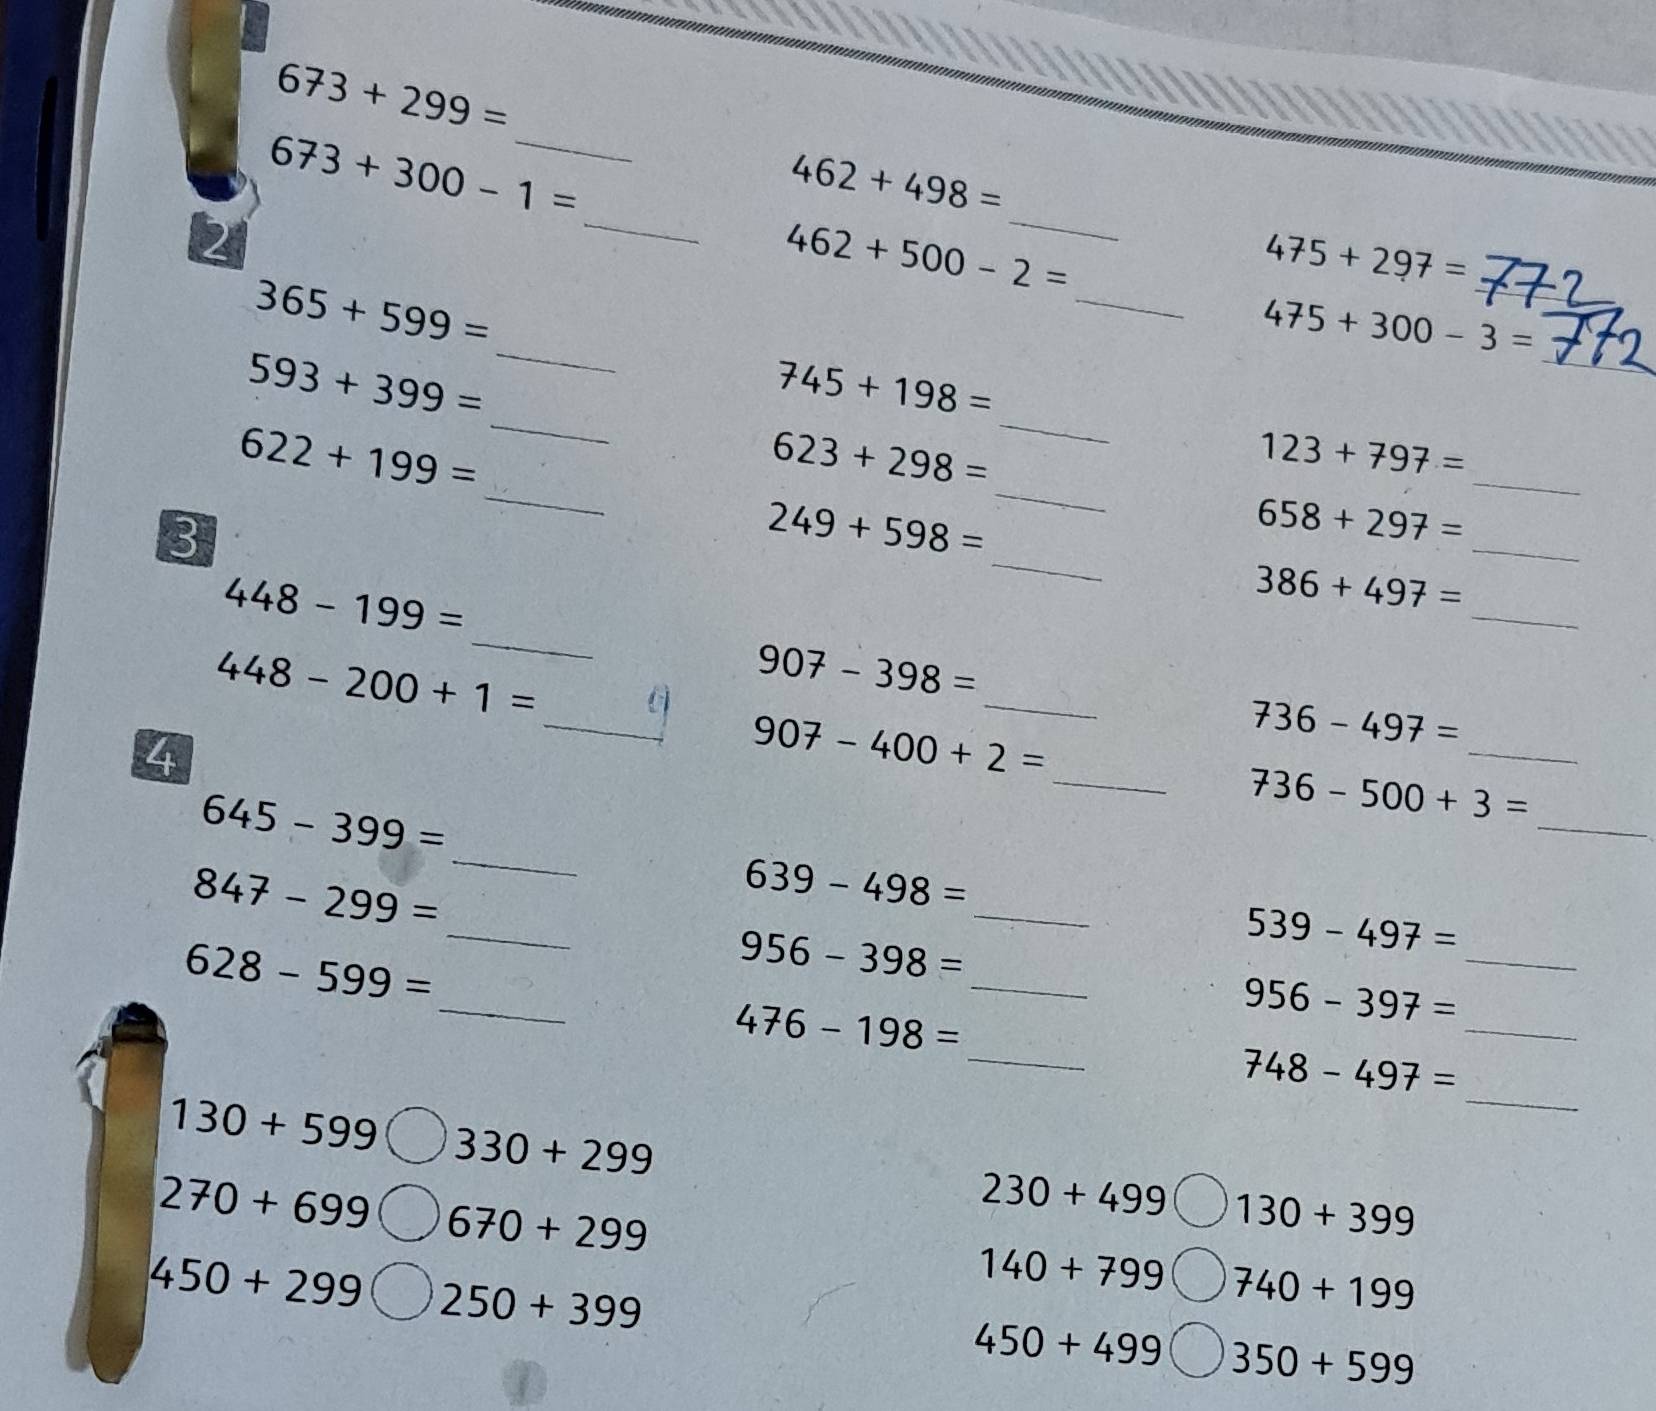 673 + 299 = ____
673 + 300 - 1 = ____
462 + 498 = ____
462 + 500 - 2 = ____
475 + 297 = 772
475 + 300 - 3 = 772
2
365 + 599 = ____
593 + 399 = ____
622 + 199 = ____
745 + 198 = ____
623 + 298 = ____
249 + 598 = ____
123 + 797 = ____
658 + 297 = ____
386 + 497 = ____
3
448 - 199 = ____
448 - 200 + 1 = ____
907 - 398 = ____
907 - 400 + 2 = ____
736 - 497 = ____
736 - 500 + 3 = ____
4
645 - 399 = ____
847 - 299 = ____
628 - 599 = ____
639 - 498 = ____
956 - 398 = ____
476 - 198 = ____
539 - 497 = ____
956 - 397 = ____
748 - 497 = ____
130 + 599 ◯ 330 + 299
270 + 699 ◯ 670 + 299
450 + 299 ◯ 250 + 399
230 + 499 ◯ 130 + 399
140 + 799 ◯ 740 + 199
450 + 499 ◯ 350 + 599